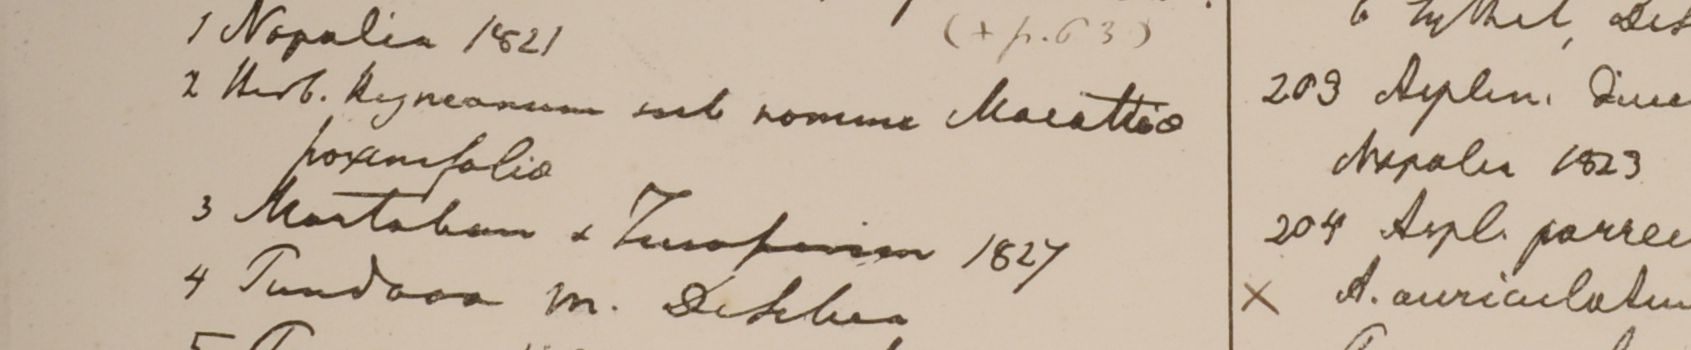 1 Napalia 1821
(+ p. 63)
2 Herb. Heyneanum sub nomine Marattia
foxinifolia
3 Martaban & 1827
4 Tundooa m. Dehhra
5
6
203 Asplen.
Napalia 1823
204 Aspl. porrec
× A. auriculatum